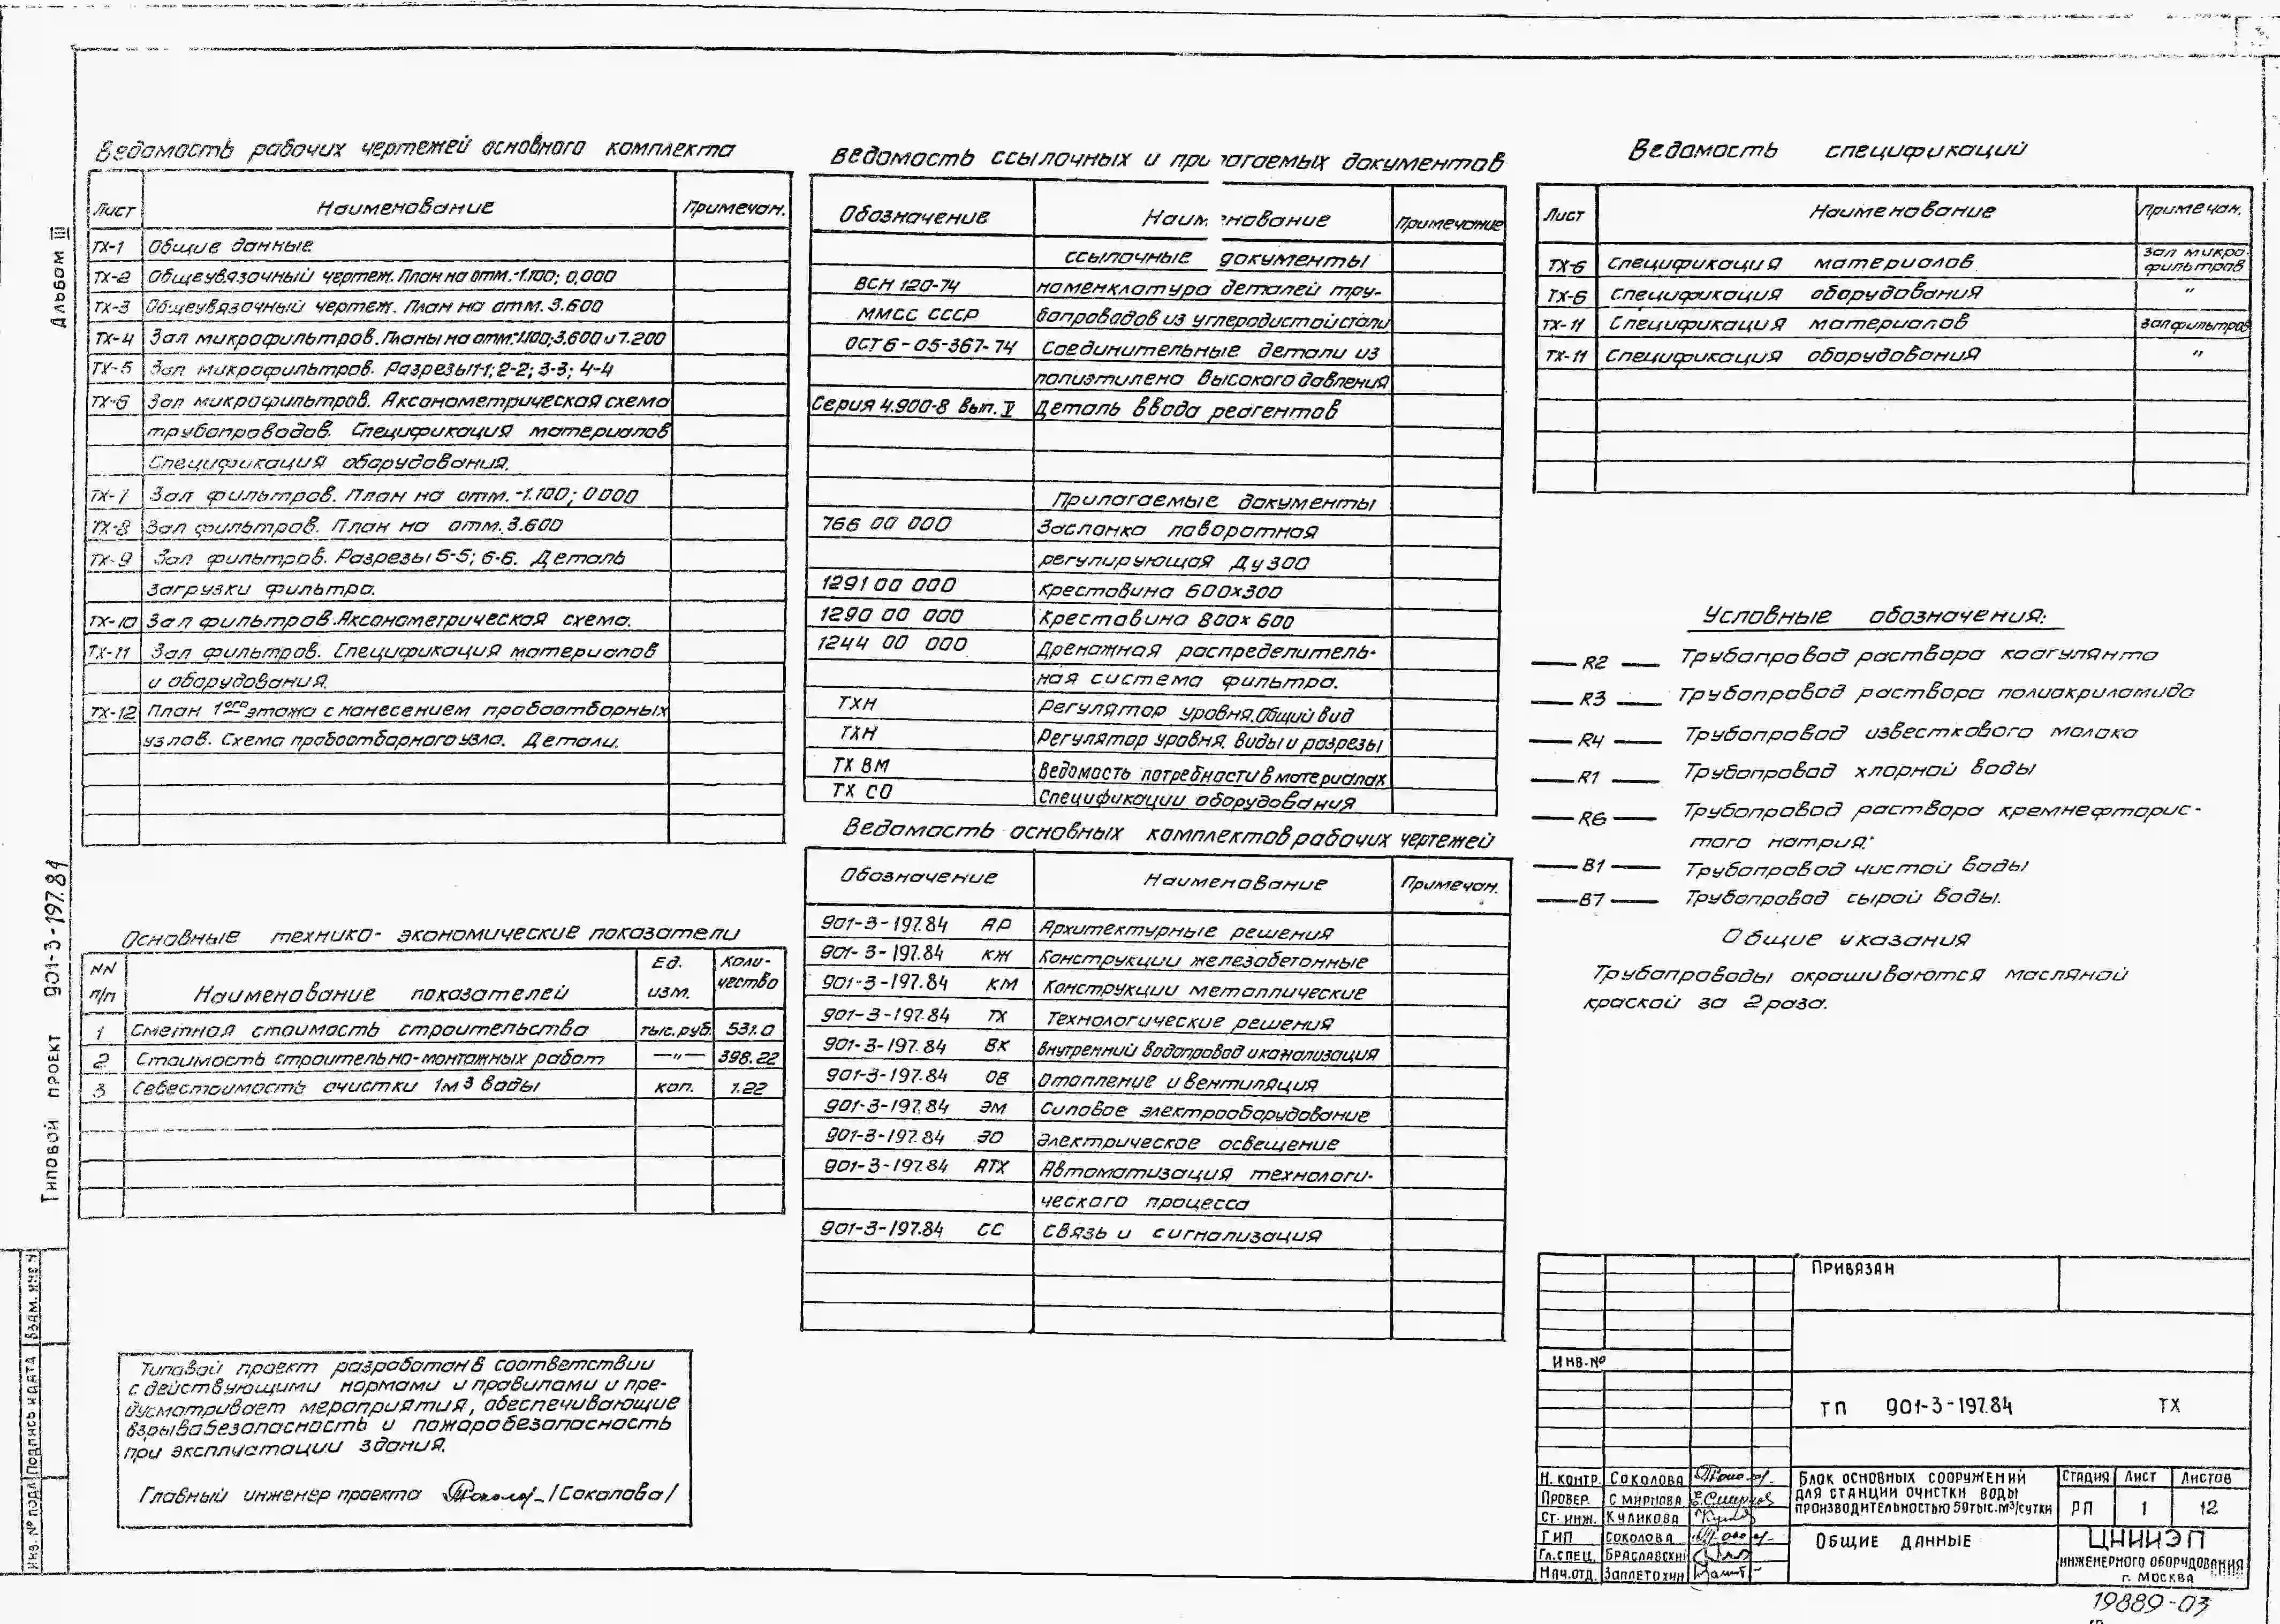 3
Альбом III
Типовой проект 901-3-197.84
Взам. инв. N
Подпись и дата
Инв. № подл.
Ведомость рабочих чертежей основного комплекта
Лист Наименование Примечан.
ТХ-1 Общие данные
ТХ-2 Общеувязочный чертеж. План на отм.-1.100; 0,000
ТХ-3 Общеувязочный чертеж. План на отм. 3.600
ТХ-4 Зал микрофильтров. Планы на отм.-1.100; 3.600 и 7.200
ТХ-5 Зал микрофильтров. Разрезы 1-1; 2-2; 3-3; 4-4
ТХ-6 Зал микрофильтров. Аксонометрическая схема
трубопроводов. Спецификация материалов
Спецификация оборудования.
ТХ-7 Зал фильтров. План на отм. -1.100; 0000
ТХ-8 Зал фильтров. План на отм. 3.600
ТХ-9 Зал фильтров. Разрезы 5-5; 6-6. Деталь
загрузки фильтра.
ТХ-10 Зал фильтров. Аксонометрическая схема.
ТХ-11 Зал фильтров. Спецификация материалов
и оборудования.
ТХ-12 План 1ого этажа с нанесением пробоотборных
узлов. Схема пробоотборного узла. Детали.
Основные технико-экономические показатели
NN п/п Наименование показателей Ед. изм. Коли-чество
1 Сметная стоимость строительства тыс. руб. 531.0
2 Стоимость строительно-монтажных работ —"— 398.22
3 Себестоимость очистки 1м3 воды коп. 1.22
Типовой проект разработан в соответствии
с действующими нормами и правилами и пре-
дусматривает мероприятия, обеспечивающие
взрывобезопасность и пожаробезопасность
при эксплуатации здания.
Главный инженер проекта /Соколова/
Ведомость ссылочных и прилагаемых документов
Обозначение Наименование Примечание
Ссылочные документы
ВСН 120-74 Номенклатура деталей тру-
ММСС СССР бопроводов из углеродистой стали
ОСТ6-05-367-74 Соединительные детали из
полиэтилена высокого давления
Серия 4.900-8 вып. V Деталь ввода реагентов
Прилагаемые документы
766 00 000 Заслонка поворотная
регулирующая Ду 300
1291 00 000 Крестовина 600х300
1290 00 000 Крестовина 800х600
1244 00 000 Дренажная распределитель-
ная система фильтра.
ТХН Регулятор уровня. Общий вид
ТХН Регулятор уровня. Виды и разрезы
ТХ ВМ Ведомость потребности в материалах
ТХ СО Спецификации оборудования
Ведомость основных комплектов рабочих чертежей
Обозначение Наименование Примечан.
901-3-197.84 АР Архитектурные решения
901-3-197.84 КЖ Конструкции железобетонные
901-3-197.84 КМ Конструкции металлические
901-3-197.84 ТХ Технологические решения
901-3-197.84 ВК Внутренний водопровод и канализация
901-3-197.84 ОВ Отопление и вентиляция
901-3-197.84 ЭМ Силовое электрооборудование
901-3-197.84 ЭО Электрическое освещение
901-3-197.84 АТХ Автоматизация технологи-
ческого процесса
901-3-197.84 СС Связь и сигнализация
Ведомость спецификаций
Лист Наименование Примечан.
ТХ-6 Спецификация материалов Зал микро-фильтров
ТХ-6 Спецификация оборудования "
ТХ-11 Спецификация материалов Зал фильтров
ТХ-11 Спецификация оборудования "
Условные обозначения:
— R2 — Трубопровод раствора коагулянта
— R3 — Трубопровод раствора полиакриламида
— R4 — Трубопровод известкового молока
— R1 — Трубопровод хлорной воды
— R6 — Трубопровод раствора кремнефторис-
того натрия.
— В1 — Трубопровод чистой воды
— В7 — Трубопровод сырой воды.
Общие указания
Трубопроводы окрашиваются масляной
краской за 2 раза.
Привязан
Инв. №
ТП 901-3-197.84 ТХ
Н. контр. Соколова
Провер. Смирнова
Ст. инж. Куликова
ГИП Соколова
Гл. спец. Браславский
Нач. отд. Заплетохин
Блок основных сооружений
для станции очистки воды
производительностью 50 тыс. м³/сутки
Стадия Лист Листов
РП 1 12
Общие данные
ЦНИИЭП
инженерного оборудования
г. Москва
19889-03